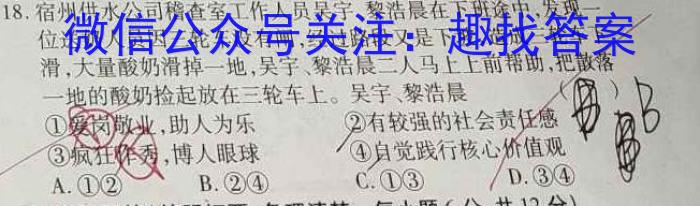 18.宿州供水公司稽查室工作人员吴宇、黎浩晨在下班途中,发现一
微信公众号关注：趣找答案
滑,大量酸奶滑掉一地,吴宇、黎浩晨二人马上上前帮助,把散落
一地的酸奶捡起放在三轮车上。吴宇、黎浩晨 ( ) B
①爱岗敬业,助人为乐 ②有较强的社会责任感
③疯狂作秀,博人眼球 ④自觉践行核心价值观
A.①② B.②④ C.①③ D.③④